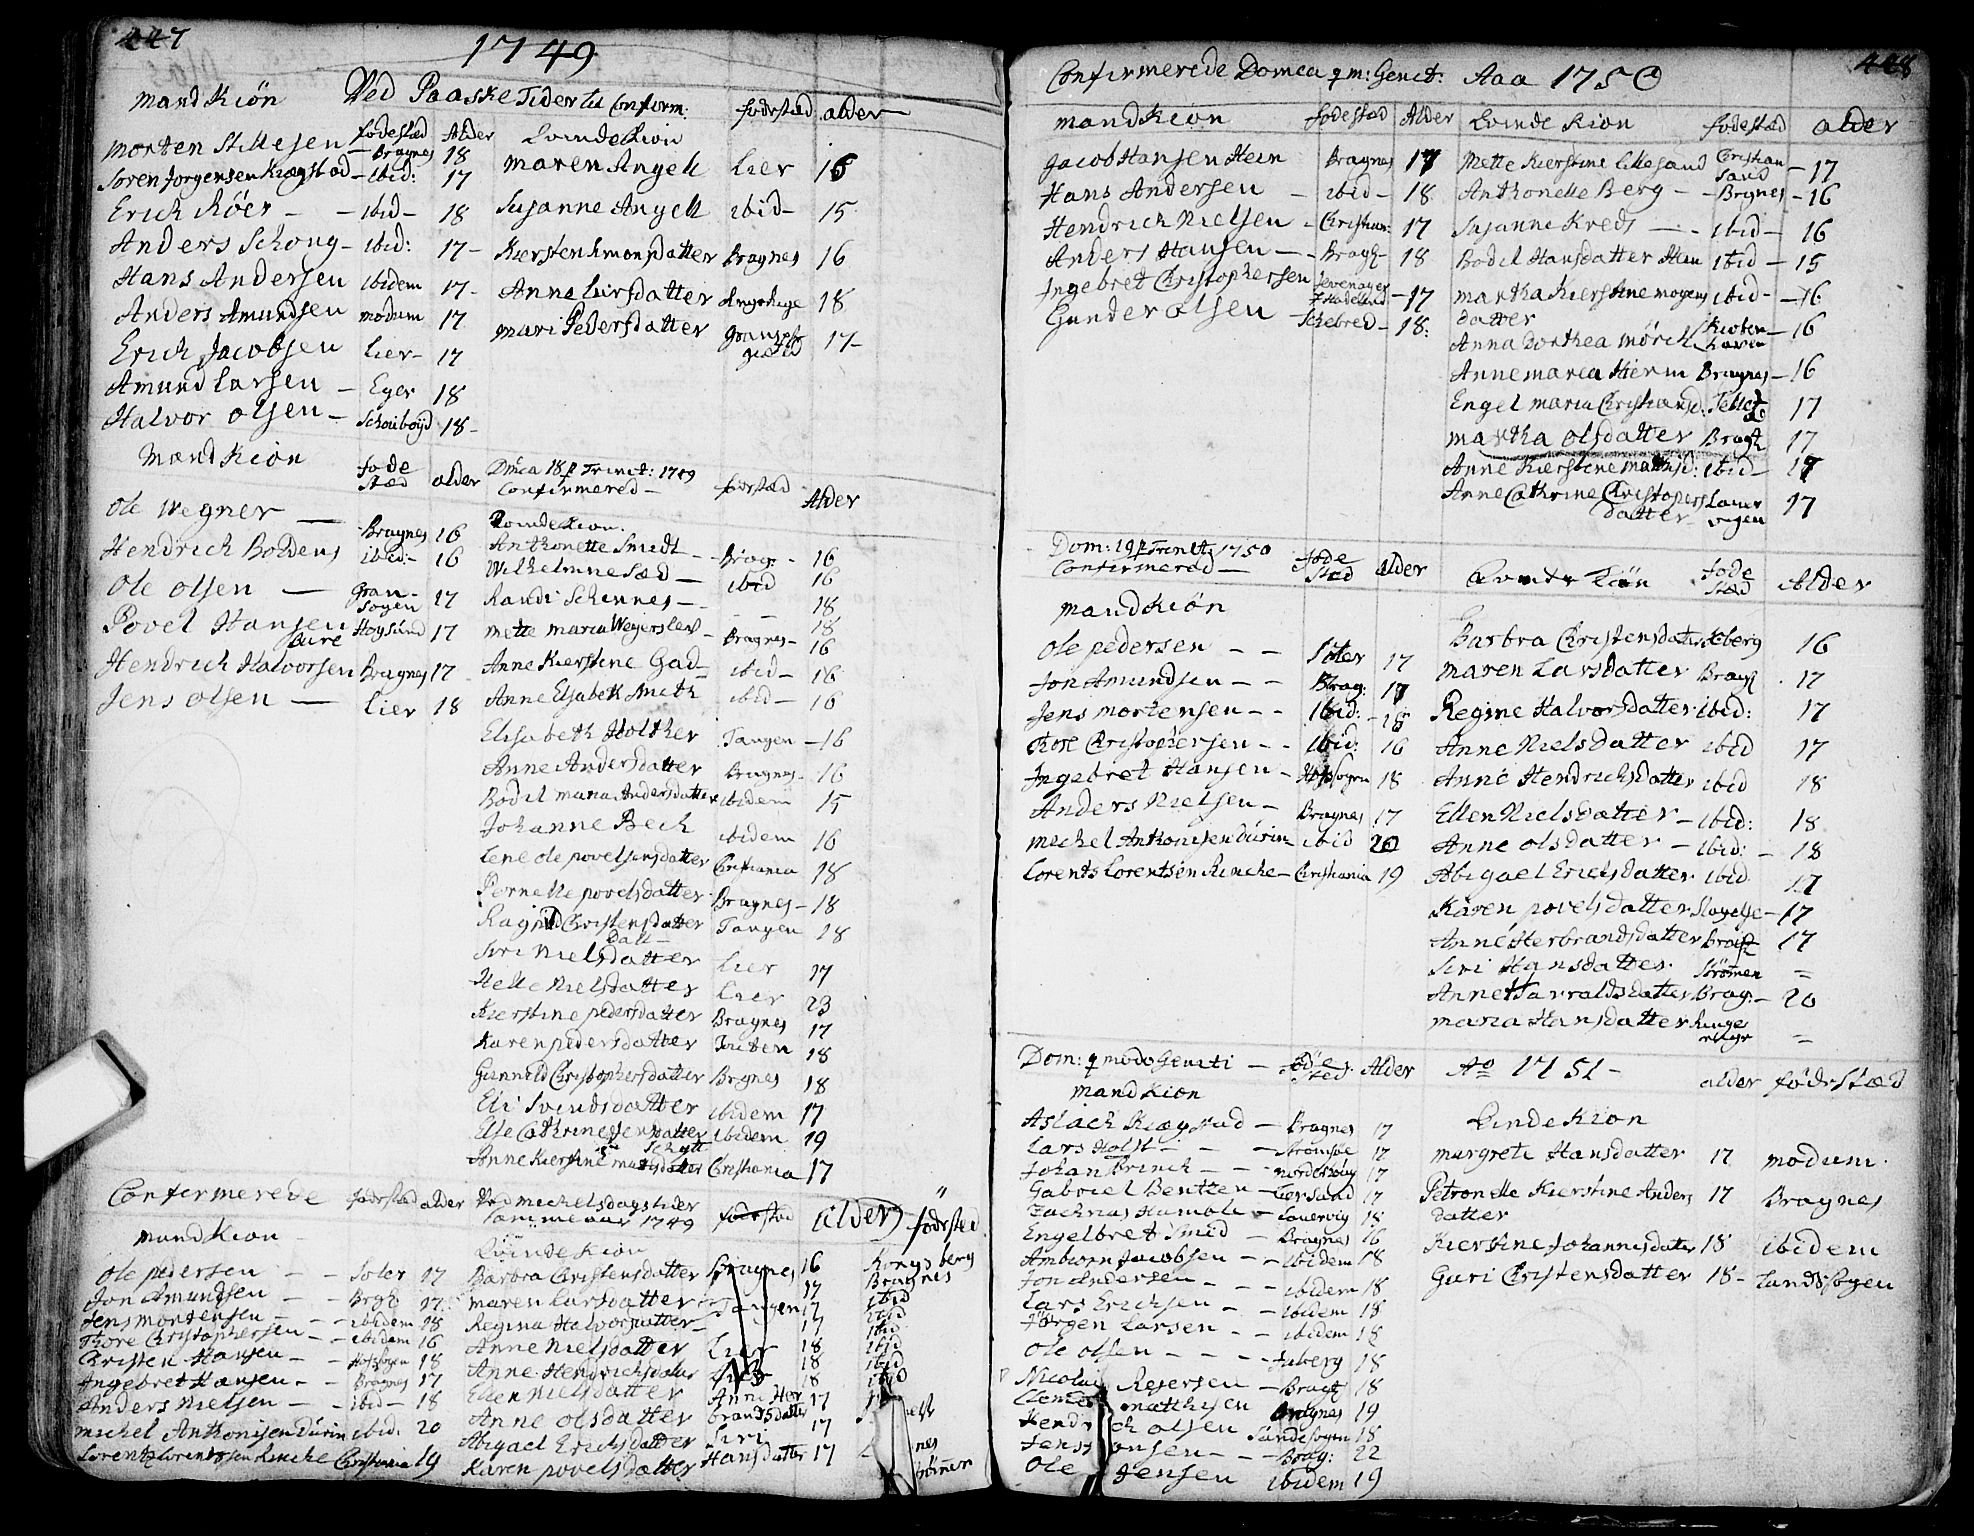 447
1749
Ved Paaske Tider til Conform:
Mand Kiøn fødestæd Alder
Morten Stillesen Bragnes 18
Soren Jorgensen Kiægstad – ibid: 17
Erich Röer – – ibid – 18
Anders Schoug – ibid: 17 –
Hans Andersen ibidem 17 –
Anders Amundsen modum 17
Erich Jacobsen Lier – 17
Amund Larsen – Eger 18
Halvor Olsen – 18 –
Qvinde Kiøn fødestæd alder
Maren Angell Lier 16
Susanne Angell ibid – 15
Kiersten Simonsdatter Bragnes 16
Anne Larsdatter 18
Mari Pedersdatter 17 –
Mænd Kiøn føde stæd alder
Ole Wegner – Bragnes 16
Hendrich Boldens ibid: – 16
Ole Olsen – Gran – sogen 17
Povel Hansen Bure Høysund 17
Hendrich Halvorsen Bragnes 17
Jens Olsen – Lier 18
Dnica 18 p Trinit: 1749
Confirmered – fødestæd Alder
Qvinde Kion.
Anthonette Smidt – Brag: – 16
Wilhelmine Sæd – ibid 16
Randi Schennes – – 18
Mette Maria Weyerslev – Bragnes – 18
16
Anne Kierstine Gad – ibid – 16
Anne Elsabeth Smith ibid – 16
Elisabeth Holther Tangen – 16
Anne Andersdatter Bragnes – 16
Bodil Maria Andersdatter ibidem 15
Johanne Bech ibidem 16
Lene Ole povelsensdatter Christiania 18
Pernelle povelsdatter Bragnes – 18
Ragnild Christensdatter Tangen 18
Datt –
Siri Nielsdatter Lier 17
Helle Nielsdatter Lier 23
Kierstine pedersdatter Bragnes 17
Karen pedersdatter 18
Gunnild Christophersdatter Bragnes 18
Eli Svendsdatter ibidem 17
Else Cathrine Jensdatter ibidem 19
Schytt
Anne Kierstine Matisdatter Christiania 17
Confirmerede fødestæd alder
Ved Michelsdags tider
samme aar 1749 fødestæd alder fødested
Mand Kion
Ole pedersen – – Soler 17
Jon Amundsen – – Brgs 17
Jens Mortensen – – ibidem 18
Thore Christophersen – – ibidem 16
Christen Hansen – – Hofsogen 18
Ingebret Hansen – – Bragnes 17
Anders Nielsen – – ibid – 18
Michel Anthonisen Dúrin ibid: 20
Lorentz Lorentzen Rincke Christiania 19
Qvinde Kion
Barbra Christensdatter Bragnes 16 Kongsberg
Maren Larsdatter 17 Bragnes
Regina Halvorsdatter – Tangen 17 ibid
Anne Nielsdatter Lier 17 ibid
Anne Hendrichsdatter 18 ibid
Ellen Nielsdatter 18 ibid
Anne Olsdatter Anne Herbrandsdatter 17
Abigael Erichsdatter Siri 17
Karen povelsdatter Hansdatter 17 Strømmen
448
Confirmerede Domca qm: Genit: Aaa 1750
Mand Kiøn fødestæd Alder
Jacob Hansen Hem Bragnes 17
Hans Andersen – ibid – 18
Hendrich Nielsen – Christian: 17
Anders Hansen – – Bragn – 18
Ingebret Christophersen Jevenager Hadeland – 17
Gunder Olsen – Schebred – 18:
Qvinde Kion fødestæd alder
Mette Kierstine Lillesand Christian Sand – 17
Anthonette Berg – – Bragnes – 16
Susanne Kreds – – ibid – 16
Bodil Hansdatter Hem ibid – 15
Martha Kierstine Mogens ibid – 16
datter
Anna Dorthea Mörch Kioben haven – 16
Anne Maria Hierm Bragnes – 16
Engel Maria Christiansd: 17
Martha Olsdatter Bragn 17
Anne Kierstine Mathisd: ibid – 17
Anne Cathrine Christophers Laur vigen 17
datter
Dom: 19 p Trinit: 1750
Confirmered – føde stæd alder
Mand Kiøn
Ole pedersen – – Soler 17
Jon Amundsen – – Brag: 17
Jens Mortensen – – ibid: – 18
Thore Christophersen – – ibid: 16
Ingebret Hansen – Hofsogen 18
Anders Nielsen – Bragnes 17
Michel Anthonisen Dúrin – ibid 20
Lorents Lorentsen Rincke – Christiania 19
Qvinde Kiön føde stæd Alder
Barbra Christensdatter Kberg 16
Maren Larsdatter Bragn 17
Regine Halvorsdatter ibid: 17
Anne Nielsdatter ibid 17
Anne Hendrichsdatter ibid 18
Ellen Nielsdatter – ibid: 18
Anne Olsdatter – ibid: – 18
Abigael Erichsdatter ibid 17
Karen povelsdatter Slagelse – 17
Anne Herbrandsdatter Bragn 17
Siri Hansdatter Strømmen =
Anne Harraldsdatter Brag: – 20
Maria Hansdatter Ringe riige =
Dom: qmodo Geniti – føde Sted Alder
Ao 1751 – alder fødestæd
Mand Kion
Aslach Kiægstad – Bragnes 17
Lars Holst – – Strømsøe 17
Johan Brinch – – 17
Gabriel Bentzen – 17
Zachrias Humble – Laurvig 18
Engelbret Smid – Bragnes 16
Ambiörn Jacobsen – ibidem 18
Jon Andersen – – ibidem 18
Lars Erichsen – – ibidem 18
Jørgen Larsen – – ibidem 18
Ole Olsen – – – 18
Nicolai Rejersen – Bragn 18
Clemet Matthisen Bragnes 19
Hendrich Olsen Sandesogen 18
Jens Hansen – – Brag: 22
Ole Jensen ibidem 19
Qvinde Kion
Margrete Hansdatter 17 Modum
Petronelle Kierstine Anders 17 Bragnes
datter
Kierstine Johannisdatter 18 ibidem
Guri Christensdatter 18 – Landsogen